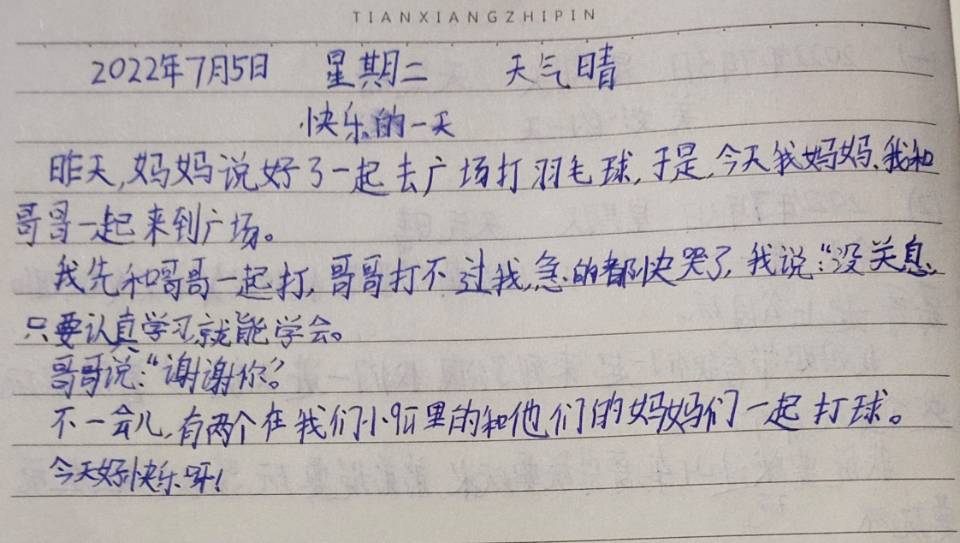 TIANXIANGZHIPIN
2022年7月5日 星期二 天气晴
快乐的一天
昨天,妈妈说好了一起去广场打羽毛球,于是,今天我妈妈、我和
哥哥一起来到广场。
我先和哥哥一起打,哥哥打不过我,急的都快哭了,我说:“没关息,
只要认真学习,就能学会。
哥哥说:“谢谢你”。
不一会儿,有两个在我们小区里的和他们的妈妈们一起打球。
今天好快乐呀!